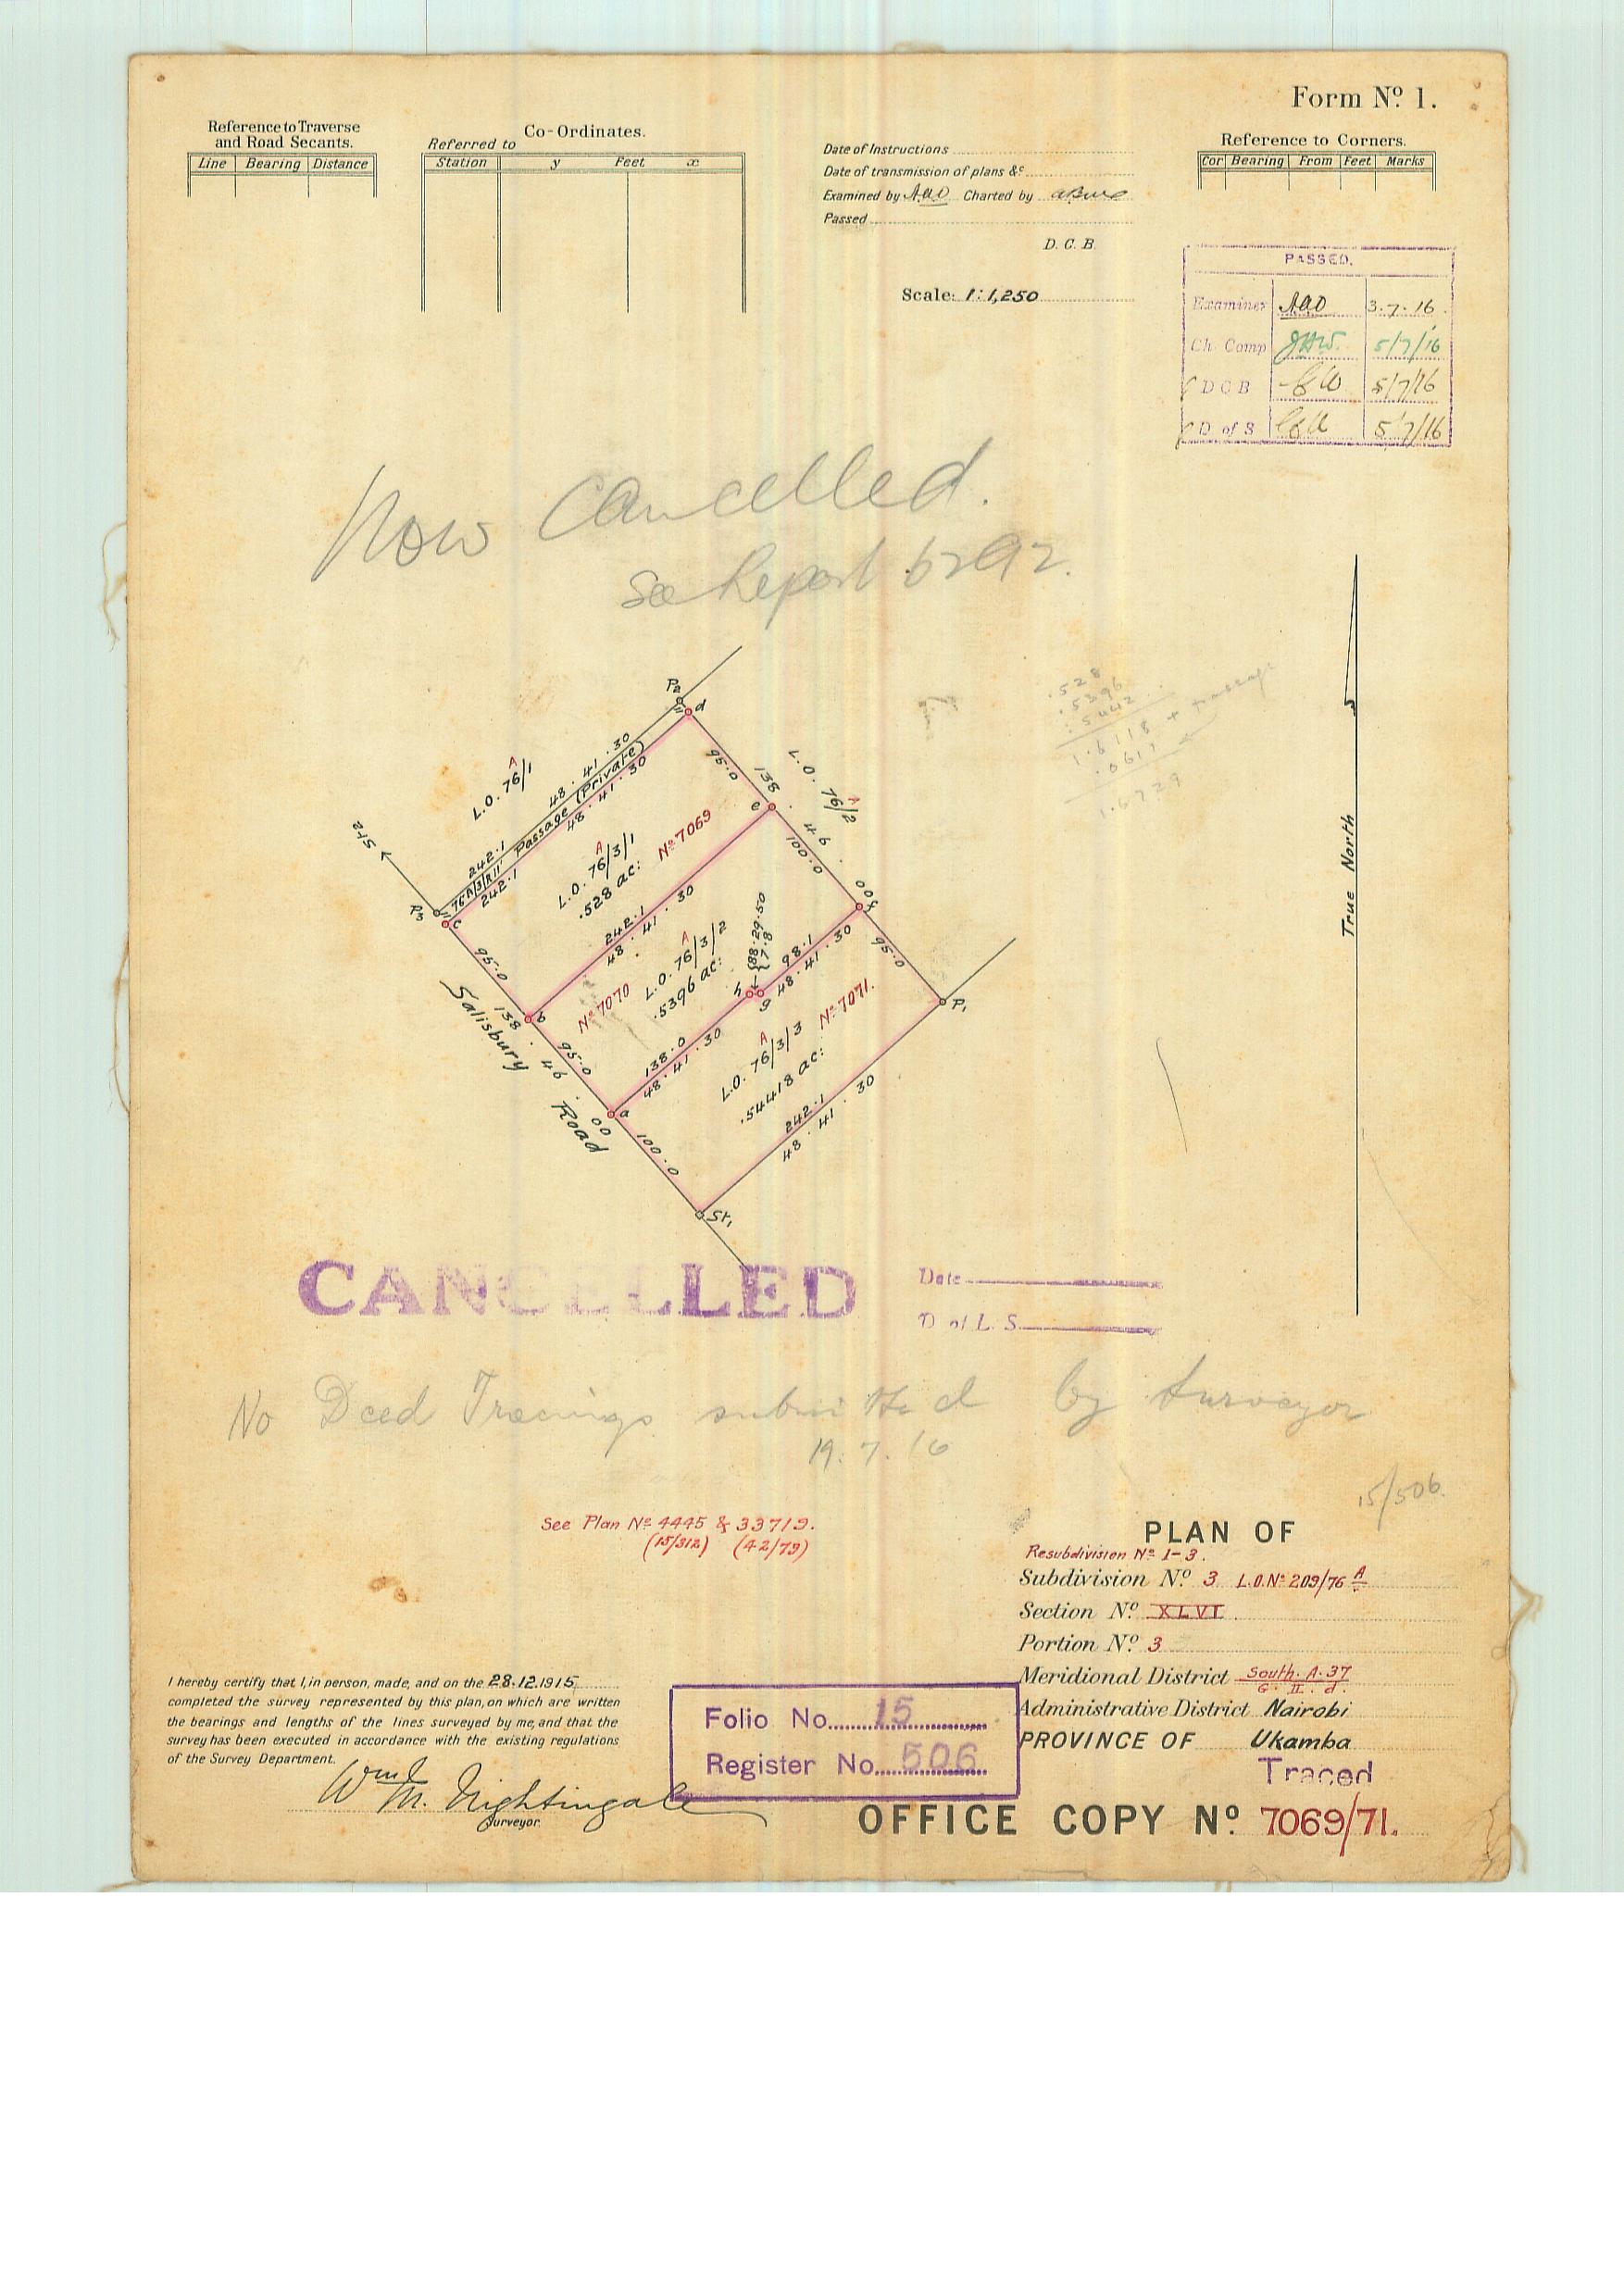 Form Nº 1.
Reference to Traverse
and Road Secants.
Line Bearing Distance
Co-Ordinates.
Referred to
Station y Feet x
Date of Instructions
Date of transmission of plans &c
Examined by AAO Charted by
Passed
D. C. B.
Scale: 1:1,250
Reference to Corners.
Cor Bearing From Feet Marks
PASSED.
Examiner AAO 3.7.16.
Ch. Comp 5/7/16
D C B 5/7/16
D of S 5/7/16
Now Cancelled.
See Report 6292.
.528
.5396
.5442
1.6118 + passage
.0611
1.6729
P2
d
11
48.41.30
242.1
Passage (Private)
76A/3/R
11
48.41.30
242.1
A
L.O. 76/1
St2
P3
c
11
95.0
A
L.O. 76/3/1
.528 ac:
Nº 7069
95.0
138.46.00
A
L.O. 76/2
e
100.0
242.1
48.41.30
A
L.O. 76/3/2
.5396 ac:
Nº 7070
88.29.50
7.8
h
g
98.1
48.41.30
f
95.0
P1
b
95.0
138.46.00
Salisbury Road
138.0
48.41.30
a
100.0
A
L.O. 76/3/3
.54418 ac:
Nº 7071.
242.1
48.41.30
St1
True North
CANCELLED
Date
D of L. S.
No Deed Tracings submitted by Surveyor
19.7.16
15/506.
See Plan Nº 4445 & 33719.
(15/312) (42/79)
PLAN OF
Resubdivision Nº 1-3.
Subdivision Nº 3 L.O. Nº 209/76 A
Section Nº XLVI
Portion Nº 3
Meridional District South. A. 37
G. II. d.
Administrative District Nairobi
PROVINCE OF Ukamba
Traced
I hereby certify that I, in person, made, and on the 28.12.1915,
completed the survey represented by this plan, on which are written
the bearings and lengths of the lines surveyed by me, and that the
survey has been executed in accordance with the existing regulations
of the Survey Department.
Wm M. Nightingale
Surveyor.
Folio No. 15
Register No. 506
OFFICE COPY Nº 7069/71.